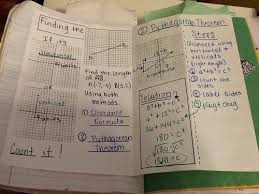 Finding the
If it's
Find the length
of AB.
A(-7,-4) B(5,2)
Using both
methods.
① Distance
Formula
② Pythagorean
Theorem
Count it!
② Pythagorean Theorem
Steps
① connect using
horizontal &
verticals
(right angle)
② a²+b²=c²
③ count the
sides
④ label sides
⑤ plug & chug
Solution
a²+b²=c²
6²+12²=c²
36+144=c²
180=c²
√180=√c²